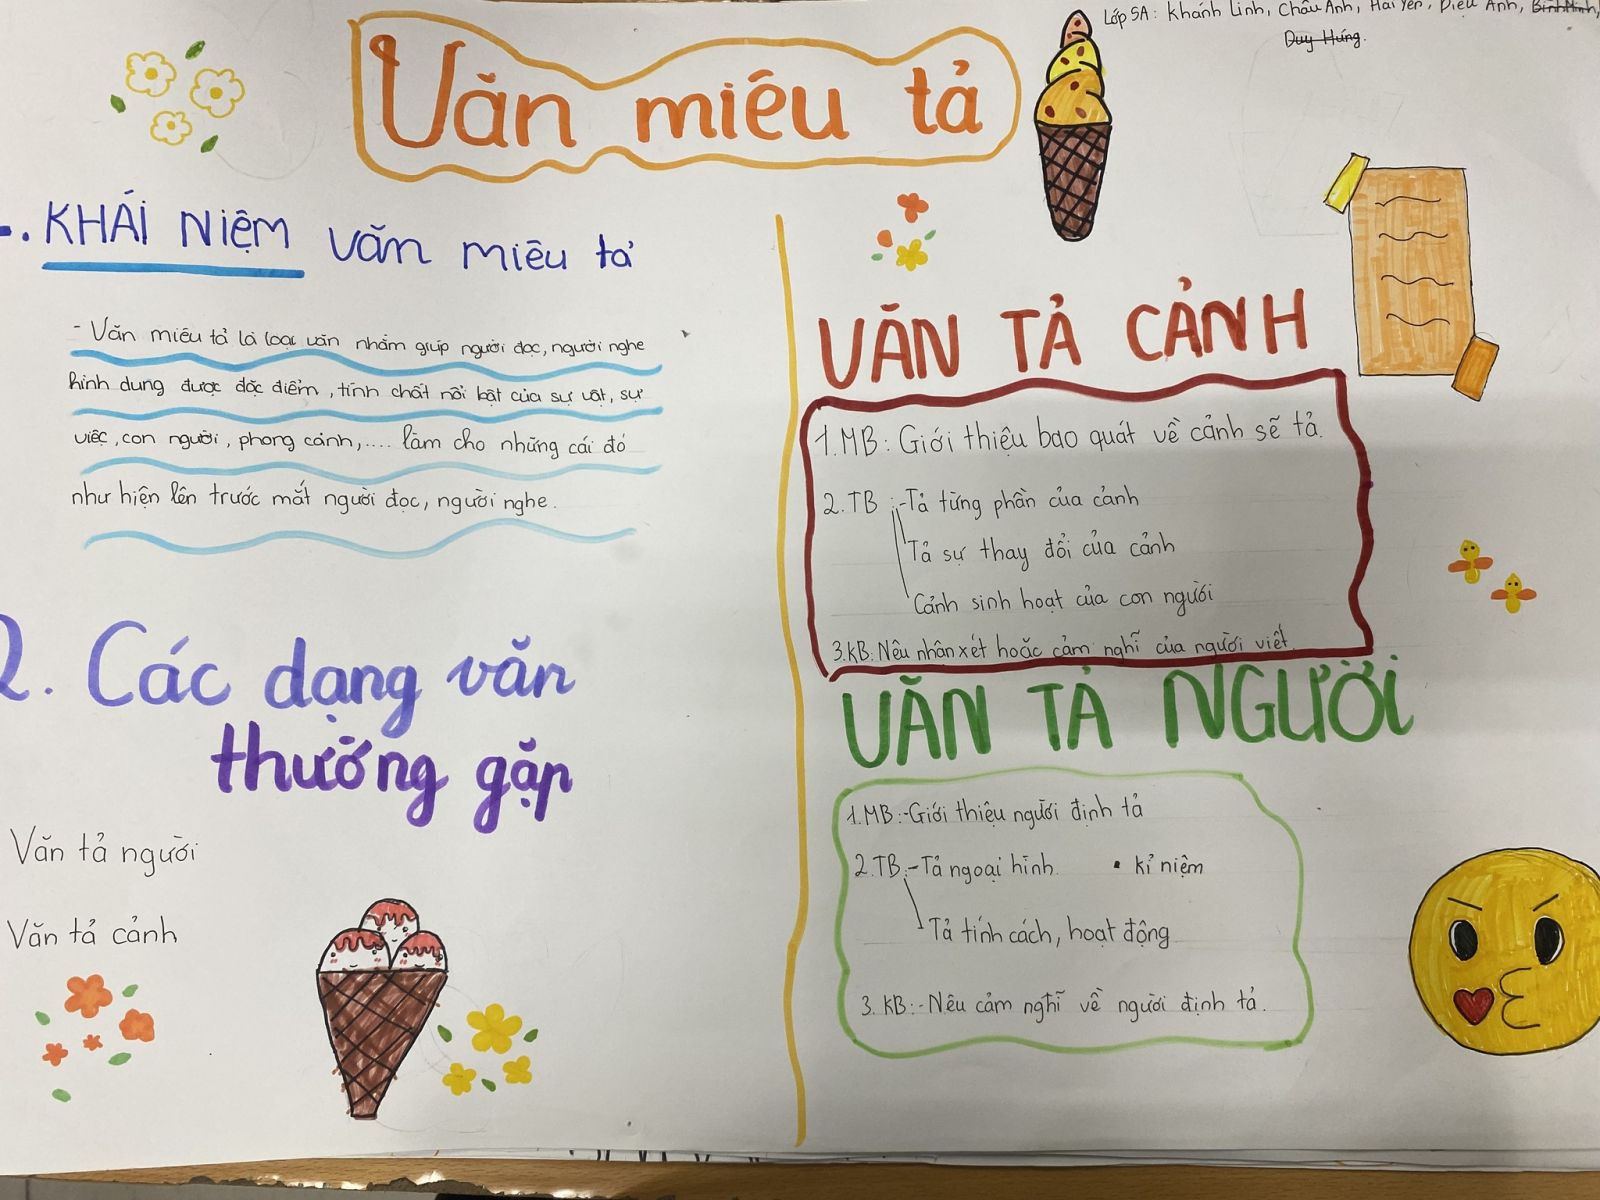 Lớp 5A: Khánh Linh, Châu Anh, Hải Yến, Diệu Anh, Bình Minh,
Duy Hưng.
Văn miêu tả
. KHÁI NIỆM văn miêu tả
- Văn miêu tả là loại văn nhằm giúp người đọc, người nghe
hình dung được đặc điểm, tính chất nổi bật của sự vật, sự
việc, con người, phong cảnh,.... làm cho những cái đó
như hiện lên trước mắt người đọc, người nghe.
2. Các dạng văn
thường gặp
Văn tả người
Văn tả cảnh
VĂN TẢ CẢNH
1.MB: Giới thiệu bao quát về cảnh sẽ tả.
2.TB :-Tả từng phần của cảnh
Tả sự thay đổi của cảnh
Cảnh sinh hoạt của con người
3.KB: Nêu nhân xét hoặc cảm nghĩ của người viết.
VĂN TẢ NGƯỜI
1.MB:-Giới thiệu người định tả
2.TB:-Tả ngoại hình. • kỉ niệm
Tả tính cách, hoạt động
3. KB:-Nêu cảm nghĩ về người định tả.